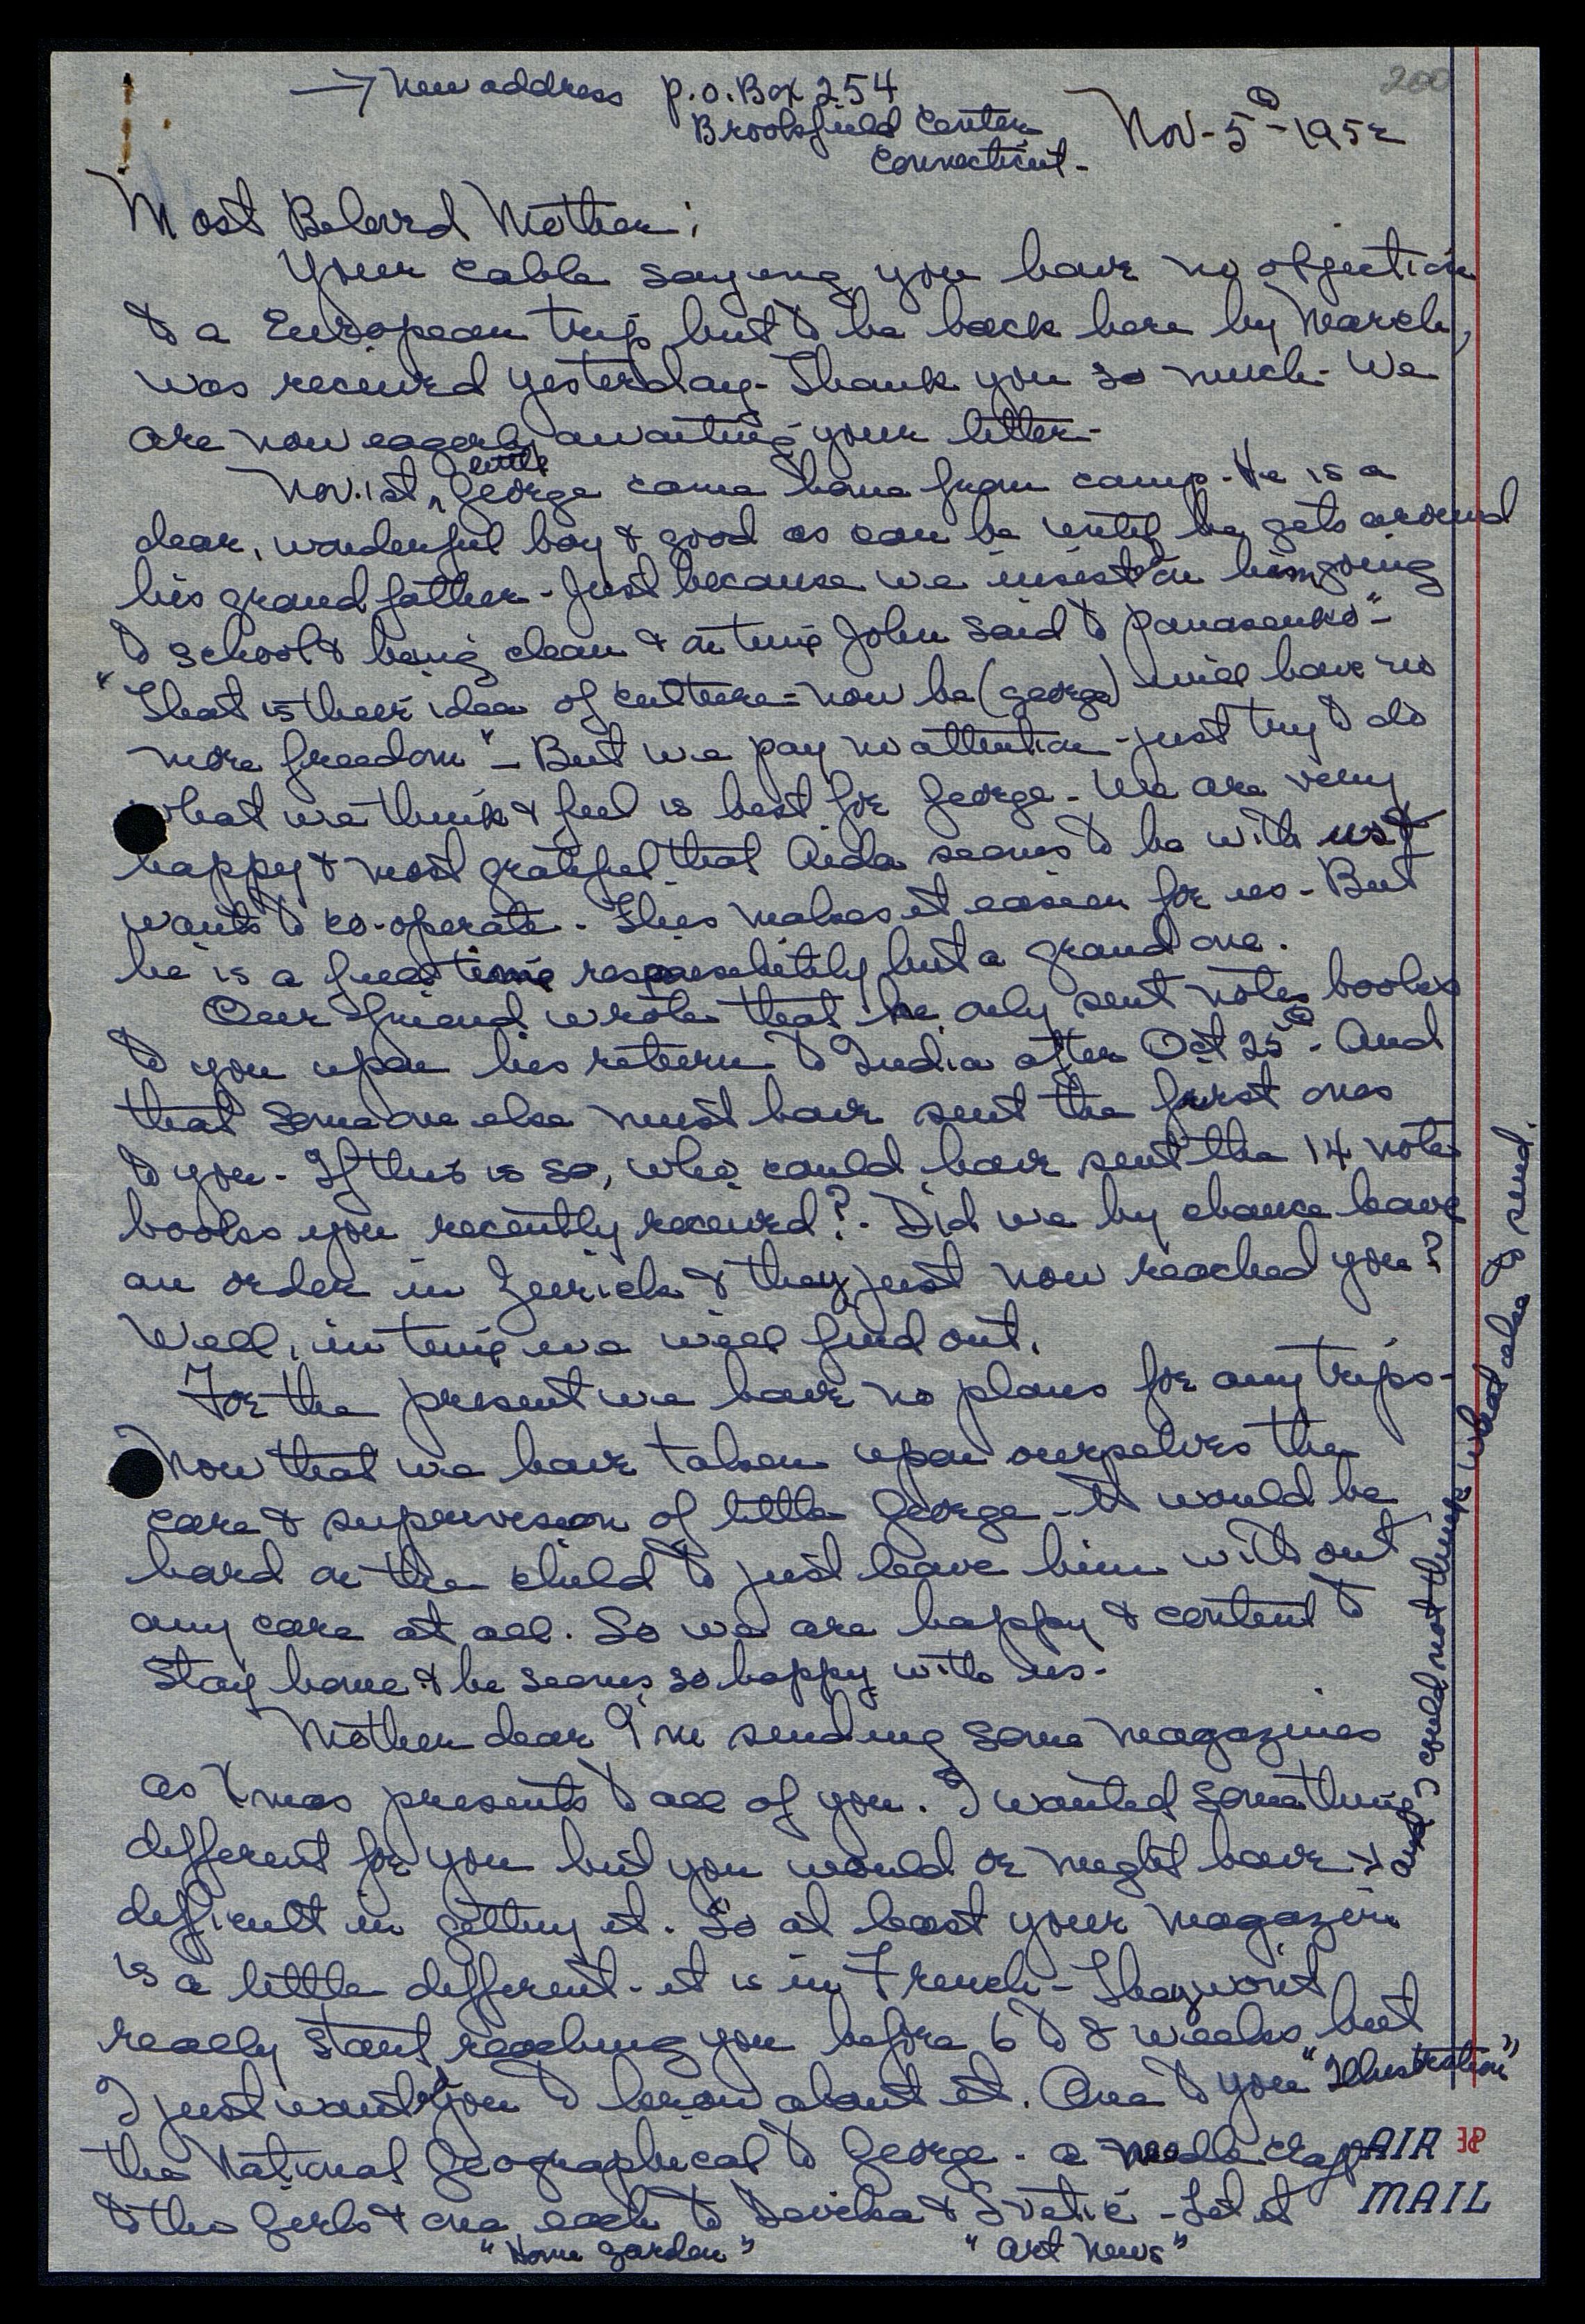 200
→ New address P.O. Box 254
Brookfield Center
Connecticut -
Nov - 5th - 1952
Most Beloved Mother;
Your cable saying you have no objection
to a European trip but to be back here by March,
was received yesterday - Thank you so much - We
are now eagerly awaiting your letter -
Nov. 1st, little George came home from camp - He is a
dear, wonderful boy & good as can be until he gets around
his grandfather - Just because we insist on him going
to school & being clean & on time John said to Panasenko" -
"That is their idea of culture - now he (George) will have no
more freedom" - But we pay no attention - just try to do
what we think & feel is best for George - We are very
happy & most grateful that Aida seems to be with us &
wants to co-operate - This makes it easier for us - But
he is a full time responsibility but a grand one.
Our friend wrote that he only sent note books
to you upon his return to India after Oct 25th - And
that someone else must have sent the first ones
to you - If this is so, who could have sent the 14 note
books you recently received? - Did we by chance leave
an order in Zurich & they just now reached you?
Well, in time we will find out.
For the present we have no plans for any trips -
Now that we have taken upon ourselves the
care & supervision of little George - it would be
hard on the child to just leave him without
any care at all. So we are happy & content to
stay home & he seems so happy with us -
Mother dear I'm sending some magazines
as Xmas presents to all of you. I wanted something
different for you but you would or might have
difficult in getting it. So at least your magazine
is a little different - it is in French - They won't
really start reaching you before 6 to 8 weeks but
I just want you to know about it. One to you "Illustration"
the National Geographical to George - a needle craft
to the girls & one each to Devika & Svetic - Let it
"Home Garden" "Art News"
and I could not think what else to send.
AIR
MAIL